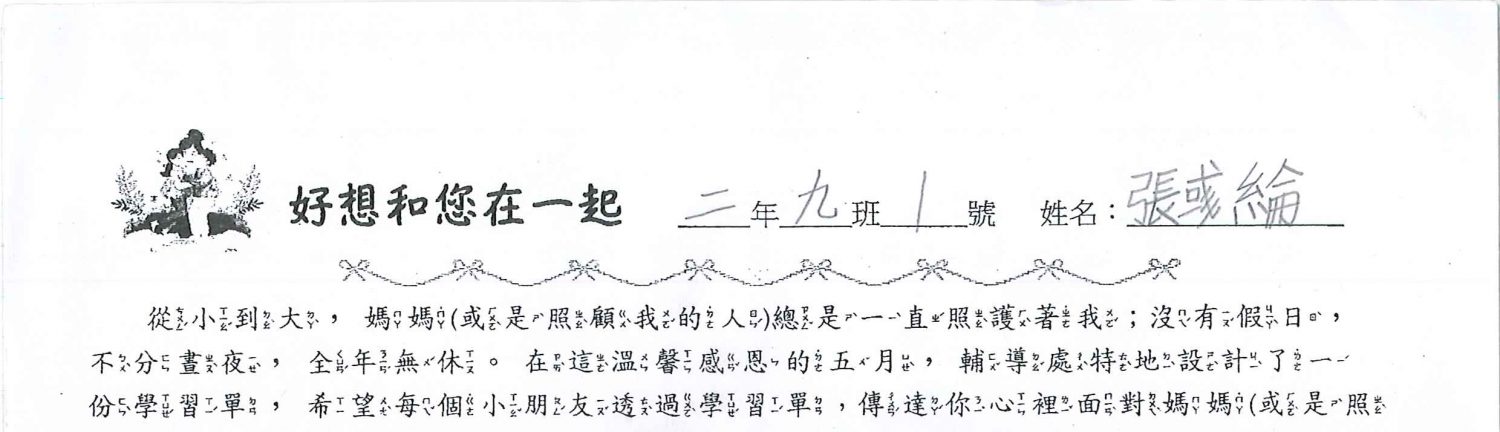 好想和您在一起 二年九班1號 姓名：張彧綸
從小到大，媽媽(或是照顧我的人)總是一直照護著我；沒有假日，
不分晝夜，全年無休。在這溫馨感恩的五月，輔導處特地設計了一
份學習單，希望每個小朋友透過學習單，傳達你心裡面對媽媽(或是照